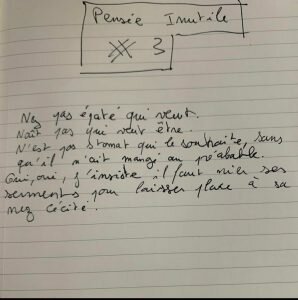 Pensée Inutile
3
Nez pas épaté qui veut.
Naît pas qui veut être.
N'est pas stomat qui le souhaite, sans
qu'il n'ait mangé au préalable.
Oui, oui, j'insiste il faut nier ses
serments pour laisser place à sa
nez cécité.